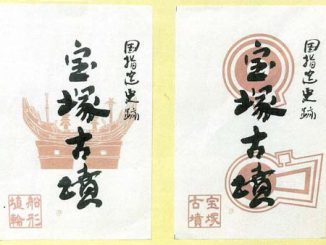 国指定史跡
宝塚古墳
船形
埴輪
国指定史跡
宝塚古墳
宝塚
古墳